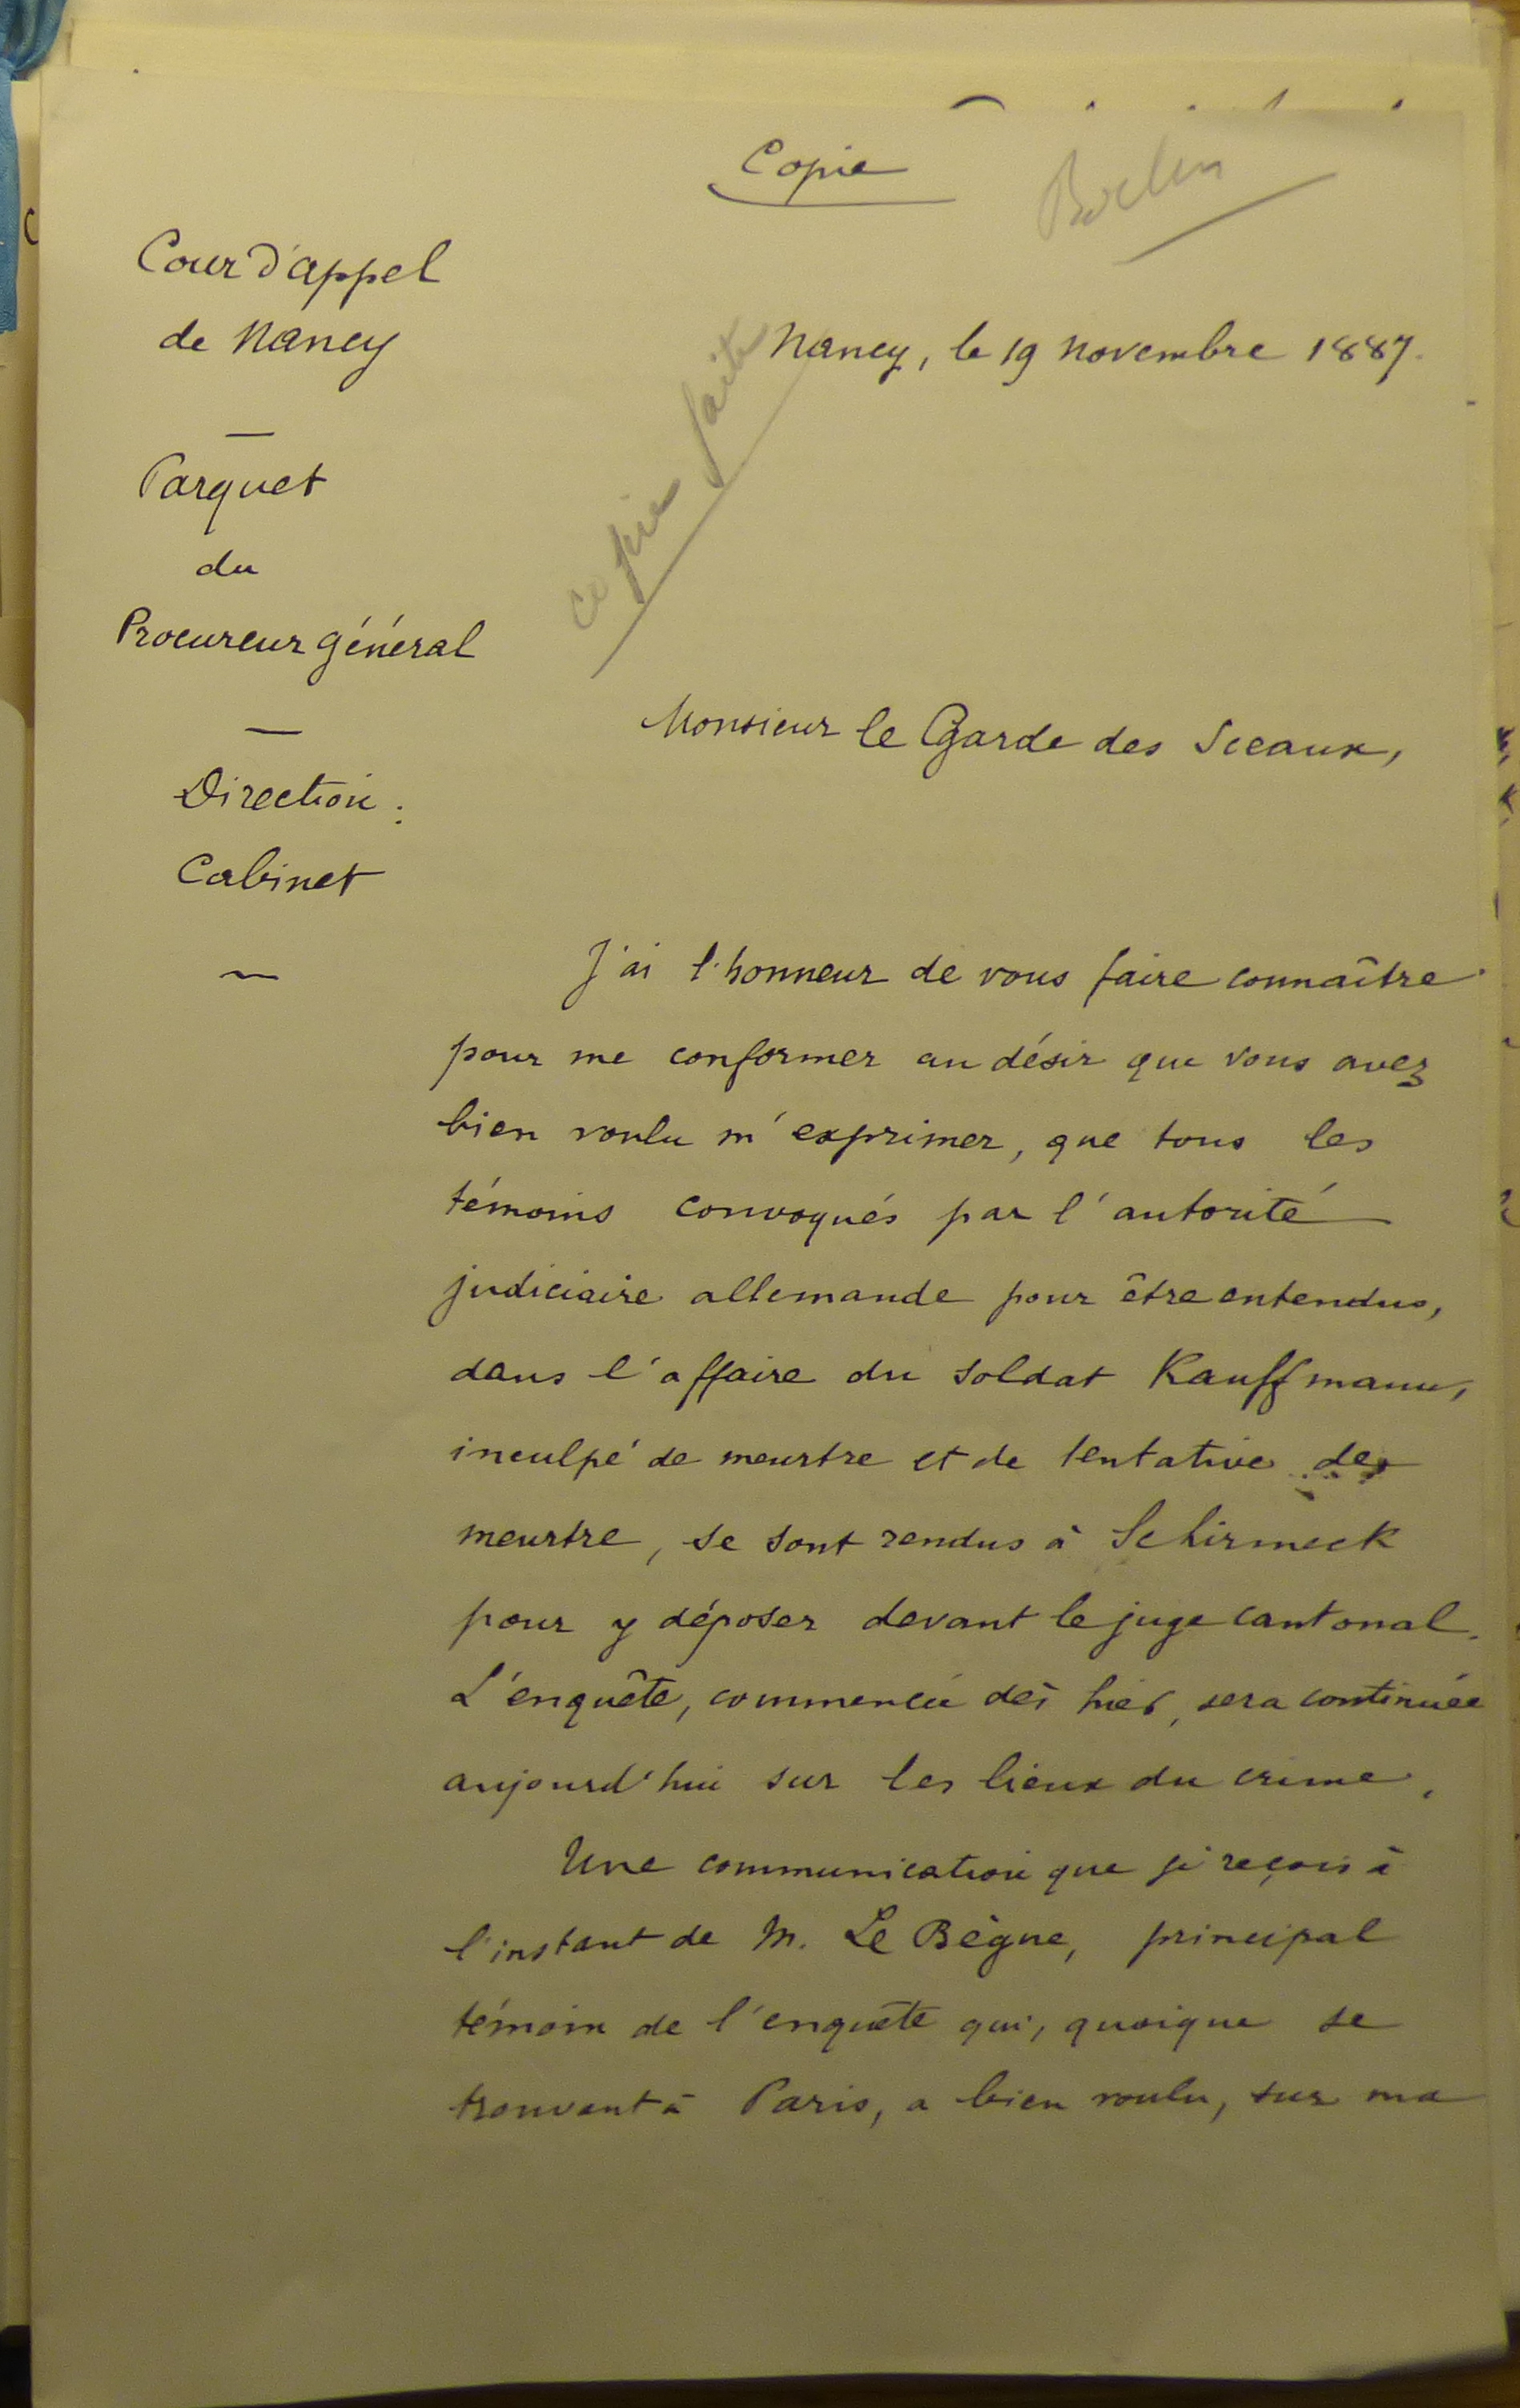 Copie
Berlin
Cour d'appel
de Nancy
Nancy, le 19 novembre 1887.
copie faite
Parquet
du
Procureur général
Monsieur le Garde des Sceaux,
Direction :
Cabinet
J'ai l'honneur de vous faire connaître
pour me conformer au désir que vous avez
bien voulu m'exprimer, que tous les
témoins convoqués par l'autorité
judiciaire allemande pour être entendus,
dans l'affaire du soldat Kauffmann,
inculpé de meurtre et de tentative de
meurtre, se sont rendus à Schirmeck
pour y déposer devant le juge cantonal.
L'enquête, commencée dès hier, sera continuée
aujourd'hui sur les lieux du crime.
Une communication que je reçois à
l'instant de M. Le Bègue, principal
témoin de l'enquête qui, quoique se
trouvant à Paris, a bien voulu, sur ma